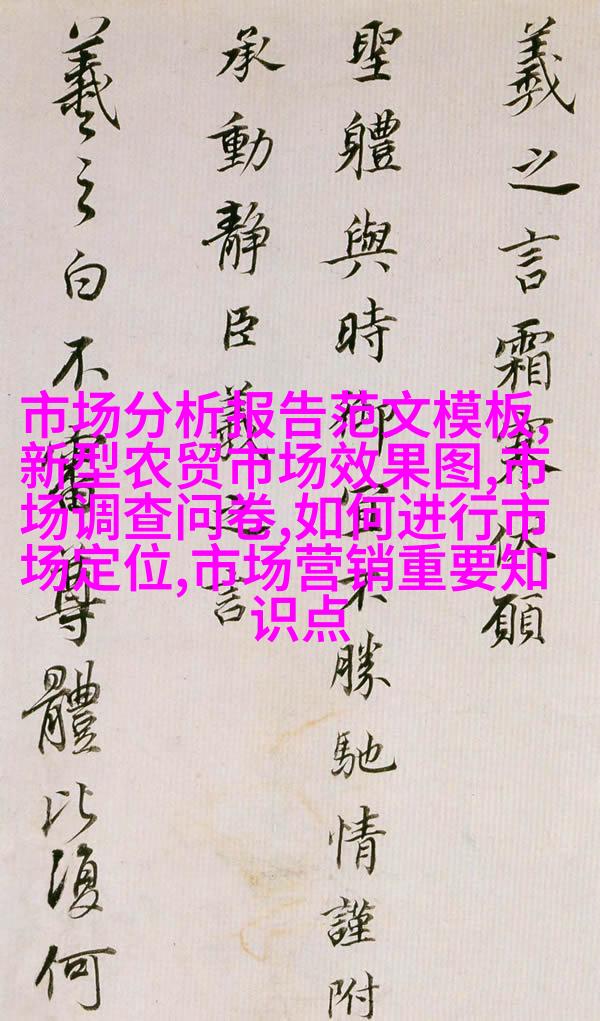 羲之言霜寒伏願
聖體與時御宜不勝馳情謹附
承動靜臣羲之言
羲之白不審尊體比復何
市场分析报告范文模板,
新型农贸市场效果图,市
场调查问卷,如何进行市
场定位,市场营销重要知
识点